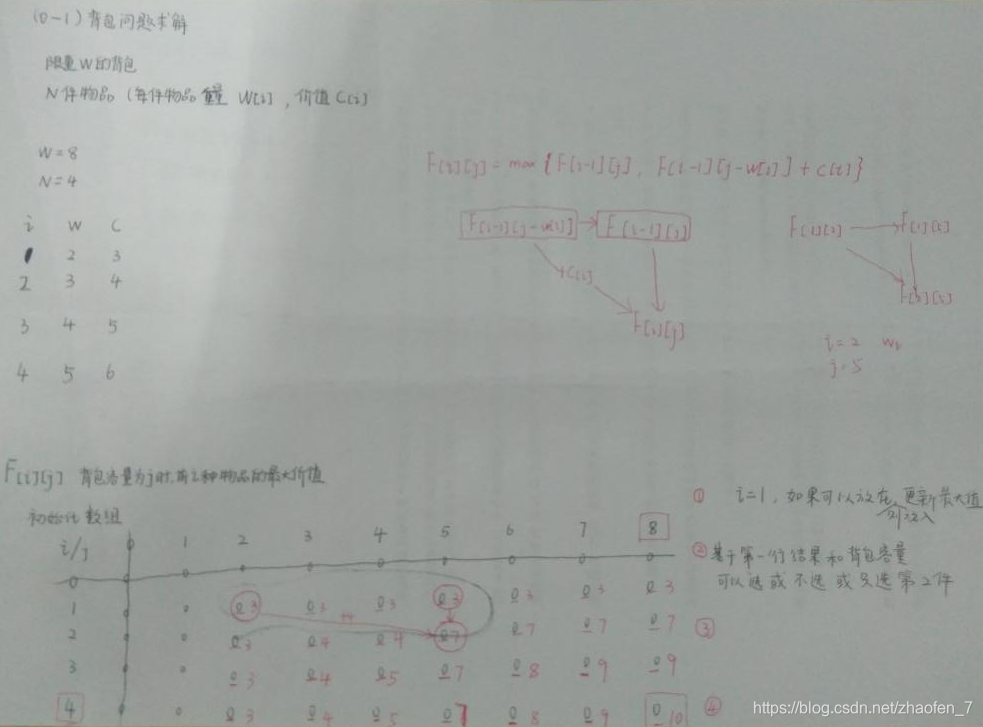 (0-1)背包问题求解
限量W的背包
N件物品(每件物品重量 W[i], 价值C[i]
W=8
N=4
i W C
1 2 3
2 3 4
3 4 5
4 5 6
F[i][j]=max{F[i-1][j], F[i-1][j-w[i]]+c[i]}
F[i-1][j-w[i]] F[i-1][j]
+C[i]
F[i][j]
F[1][2] F[1][5]
F[2][5]
i=2
j=5
F[i][j] 背包容量为j时,前i种物品的最大价值
初始化数组
i/j 0 1 2 3 4 5 6 7 8
0 0 0 0 0 0 0 0 0 0
1 0 0 0 3 0 3 0 3 0 3 0 3 0 3 0 3
2 0 0 0 3 0 4 0 4 0 7 0 7 0 7 0 7
3 0 0 0 3 0 4 0 5 0 7 0 8 0 9 0 9
4 0 0 0 3 0 4 0 5 0 7 0 8 0 9 0 10
① i=1, 如果可以放在,更新最大值
② 基于第一行结果和背包容量
可以选或不选或只选第2件
③
④
https://blog.csdn.net/zhaofen_7